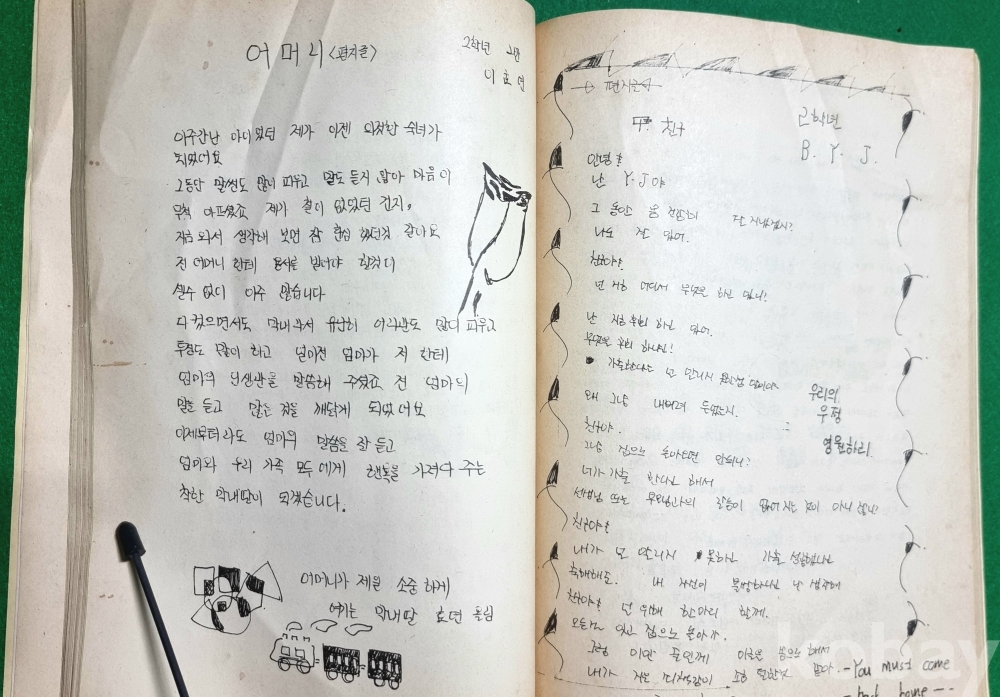 어머니 <편지글>
2학년 2반
이효연
아주 작난 아이였던 제가 이젠 의젓한 숙녀가
되었어요
그동안 말썽도 많이 피우고 말도 듣지 않아 마음이
무척 아프셨죠 제가 철이 없었던 건지,
지금 와서 생각해 보면 참 한심 했던것 같아요
전 어머니 한테 용서를 빌어야 할것이
셀수 없이 아주 많습니다
다 컸으면서도 막내라서 유난히 어리광도 많이 피우고
투정도 많이 하고 얼마전 엄마가 저 한테
엄마의 인생관을 말씀해 주셨죠 전 엄마의
말을 듣고 많은 것을 깨닫게 되었어요
이제부터라도 엄마의 말씀을 잘 듣고
엄마와 우리 가족 모두에게 행복을 가져다 주는
착한 막내딸이 되겠습니다.
어머니가 제일 소중하게
여기는 막내딸 효연 올림
편지글
친구
2학년
B. Y. J.
안녕!
난 Y.J야
그 동안 잘 지냈겠지?
나도 잘 있어.
친구야.
넌 지금 어디서 무엇을 하고 있니?
난 지금 하고 있어.
우리의
우정
영원하리
왜 그냥 내버려 두었는지.
친구야.
그냥 집으로 돌아오면 안되니?
네가 가출 한다고 해서
선생님 또는 부모님과의 갈등이 없어지는 것이 아니잖니?
친구야!
내가 널 말리지 못하고 가출
내 자신이
친구야! 널 위해 한마디 할께.
오늘은 집으로 돌아가.
그럼 이만 줄일께
-You must come
back home--
kobay